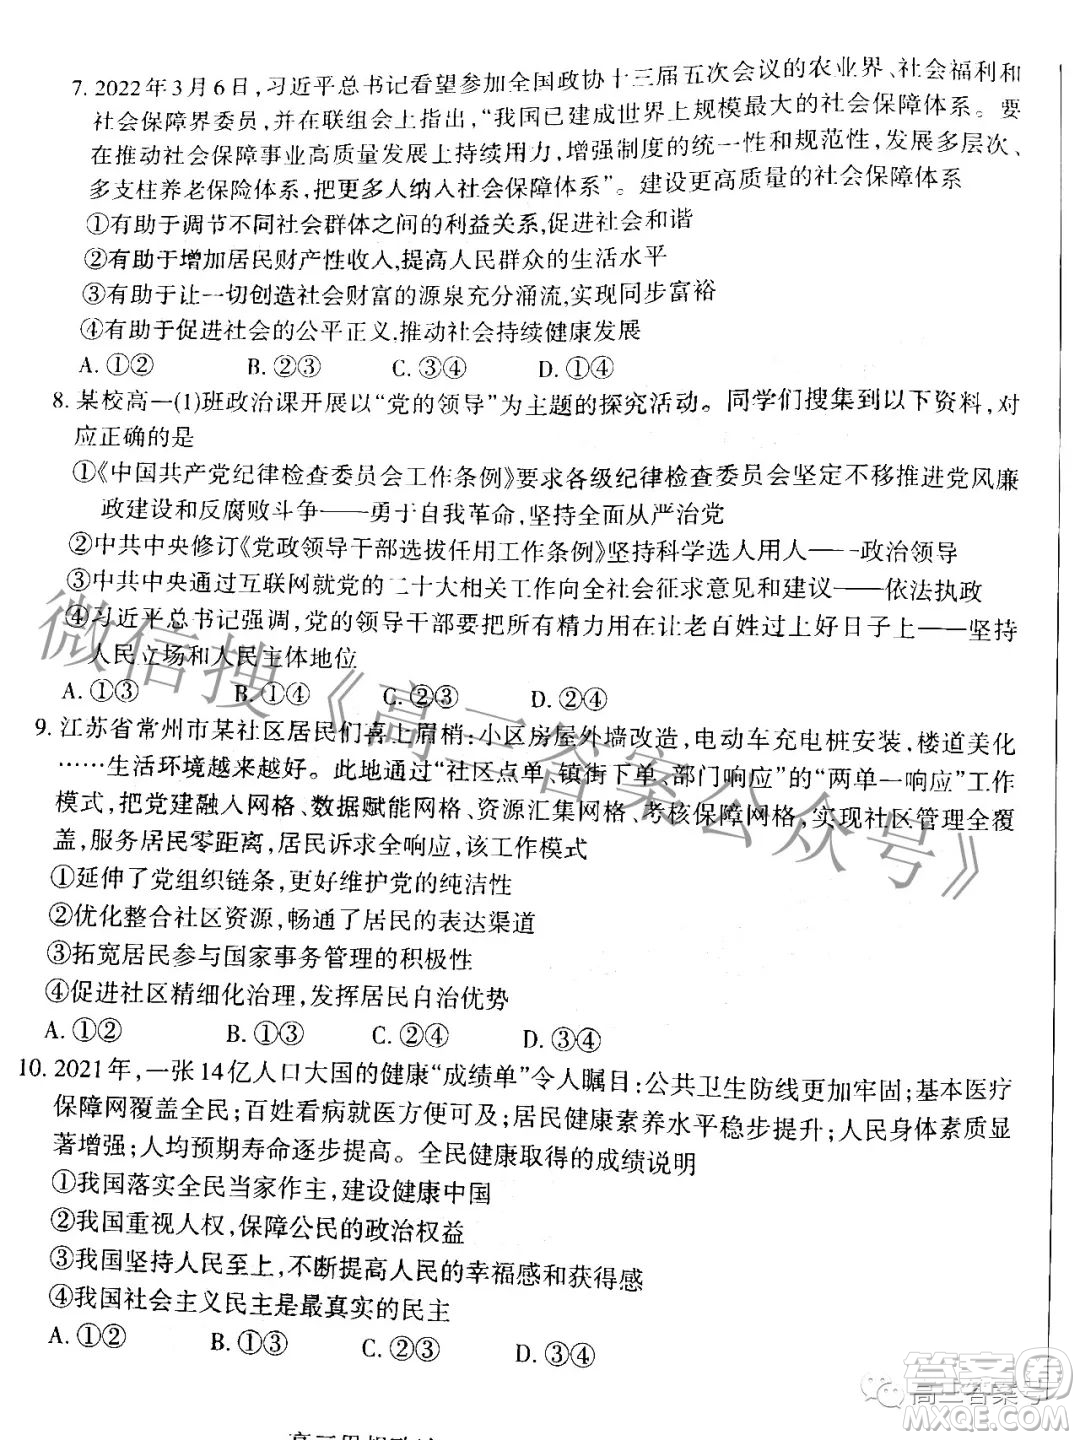 7. 2022年3月6日,习近平总书记看望参加全国政协十三届五次会议的农业界、社会福利和
社会保障界委员,并在联组会上指出,“我国已建成世界上规模最大的社会保障体系。要
在推动社会保障事业高质量发展上持续用力,增强制度的统一性和规范性,发展多层次、
多支柱养老保险体系,把更多人纳入社会保障体系”。建设更高质量的社会保障体系
①有助于调节不同社会群体之间的利益关系,促进社会和谐
②有助于增加居民财产性收入,提高人民群众的生活水平
③有助于让一切创造社会财富的源泉充分涌流,实现同步富裕
④有助于促进社会的公平正义,推动社会持续健康发展
A. ①② B. ②③ C. ③④ D. ①④
8. 某校高一(1)班政治课开展以“党的领导”为主题的探究活动。同学们搜集到以下资料,对
应正确的是
①《中国共产党纪律检查委员会工作条例》要求各级纪律检查委员会坚定不移推进党风廉
政建设和反腐败斗争——勇于自我革命,坚持全面从严治党
②中共中央修订《党政领导干部选拔任用工作条例》坚持科学选人用人——政治领导
③中共中央通过互联网就党的二十大相关工作向全社会征求意见和建议——依法执政
④习近平总书记强调,党的领导干部要把所有精力用在让老百姓过上好日子上——坚持
人民立场和人民主体地位
A. ①③ B. ①④ C. ②③ D. ②④
9. 江苏省常州市某社区居民们喜上眉梢:小区房屋外墙改造,电动车充电桩安装,楼道美化
……生活环境越来越好。此地通过“社区点单、镇街下单、部门响应”的“两单一响应”工作
模式,把党建融入网格、数据赋能网格、资源汇集网格、考核保障网格,实现社区管理全覆
盖,服务居民零距离,居民诉求全响应,该工作模式
①延伸了党组织链条,更好维护党的纯洁性
②优化整合社区资源,畅通了居民的表达渠道
③拓宽居民参与国家事务管理的积极性
④促进社区精细化治理,发挥居民自治优势
A. ①② B. ①③ C. ②④ D. ③④
10. 2021年,一张14亿人口大国的健康“成绩单”令人瞩目:公共卫生防线更加牢固;基本医疗
保障网覆盖全民;百姓看病就医方便可及;居民健康素养水平稳步提升;人民身体素质显
著增强;人均预期寿命逐步提高。全民健康取得的成绩说明
①我国落实全民当家作主,建设健康中国
②我国重视人权,保障公民的政治权益
③我国坚持人民至上,不断提高人民的幸福感和获得感
④我国社会主义民主是最真实的民主
A. ①② B. ①③ C. ②④ D. ③④
微信搜《高三答案公众号》
高三答案号
答案圈
MXQE.COM